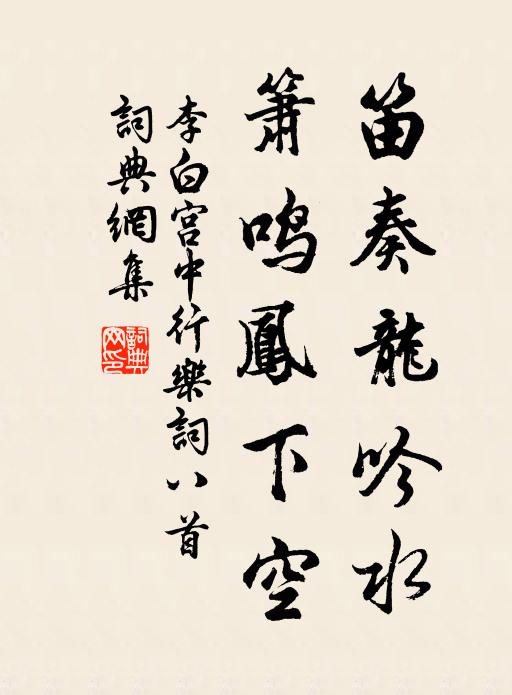 笛奏龍吟水
簫鳴鳳下空
李白宮中行樂詞八首
詞典網集
詞典网印